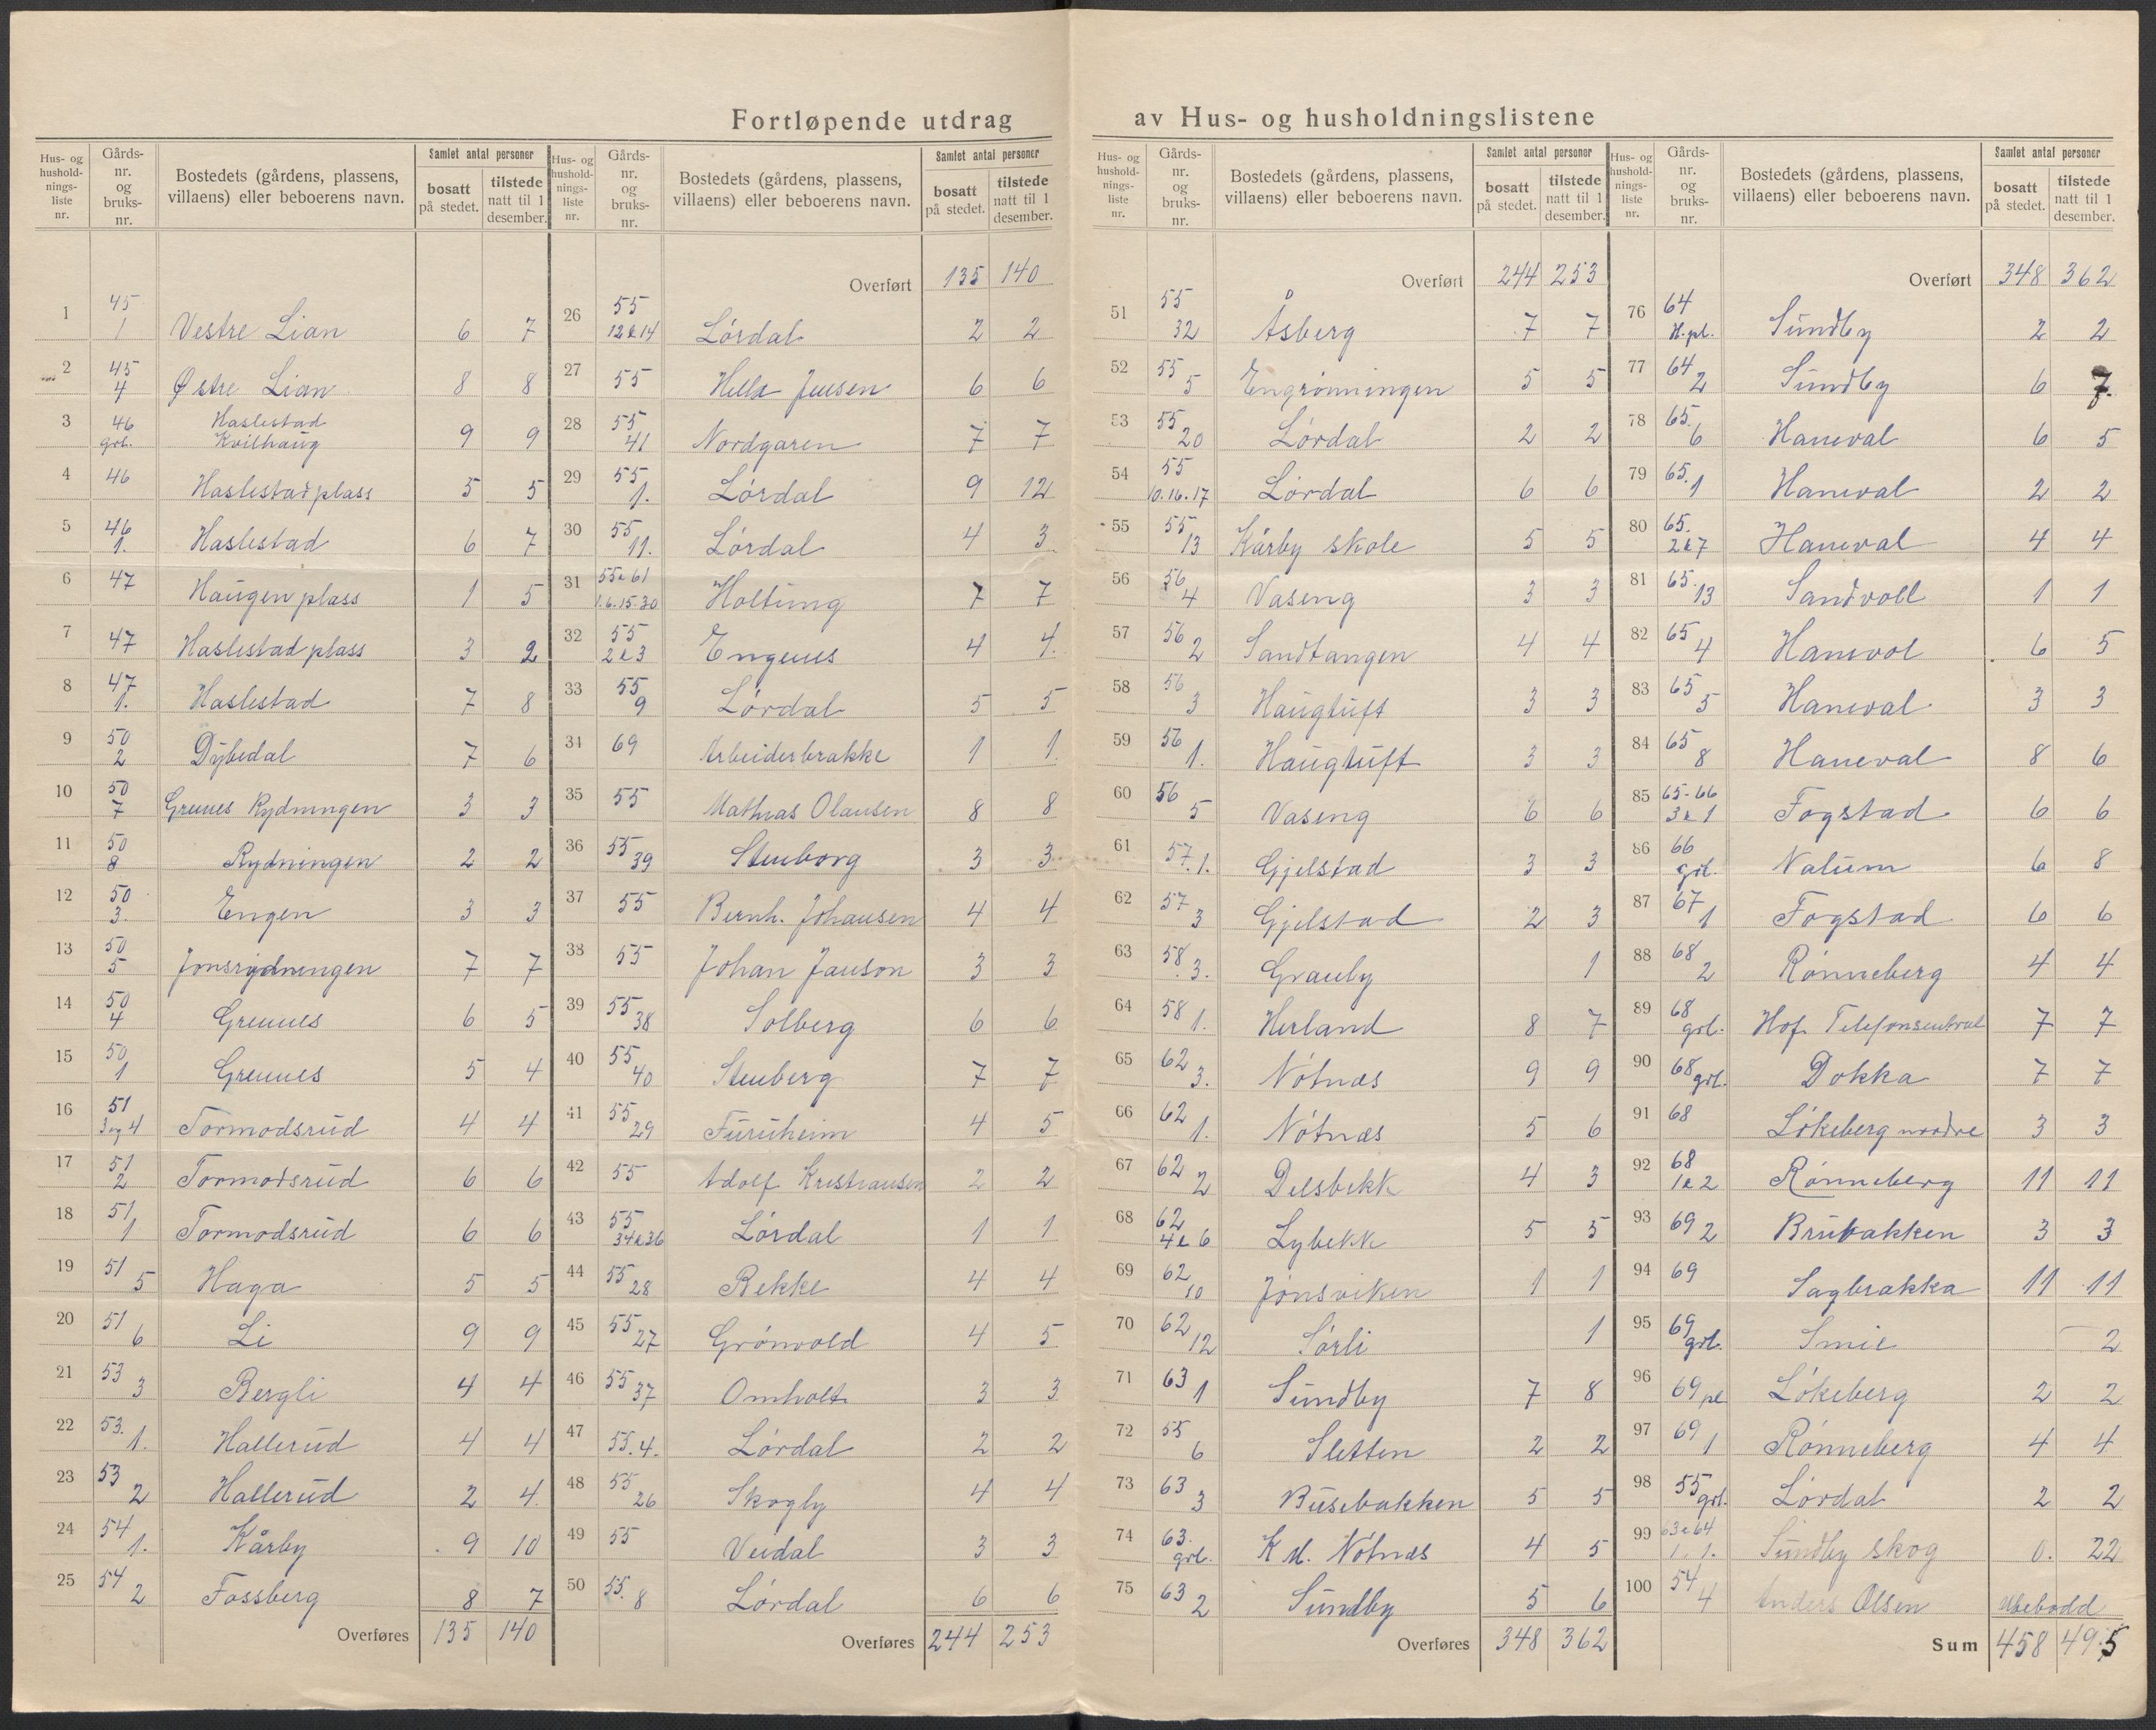 Fortløpende utdrag av Hus- og husholdningslistene
Hus- og husholdningsliste nr. | Gårds-nr. og bruks-nr. | Bostedets (gårdens, plassens, villaens) eller beboerens navn. | Samlet antal personer bosatt på stedet. | tilstede natt til 1 desember.
1 45 1 Vestre Lian 6 7
2 45 4 Østre Lian 8 8
3 46 grl. Haslestad Kvilhaug 9 9
4 46 Haslestadplass 5 5
5 46 1. Haslestad 6 7
6 47 Haugen plass 1 5
7 47 Haslestad plass 3 2
8 47 1. Haslestad 7 8
9 50 2 Dybedal 7 6
10 50 7 Grennes Rydningen 3 3
11 50 8 Rydningen 2 2
12 50 3. Engen 3 3
13 50 5 Jonsrydningen 7 7
14 50 4 Grennes 6 5
15 50 1 Grennes 5 4
16 51 3 og 4 Tormodsrud 4 4
17 51 2 Tormodsrud 6 6
18 51 1 Tormodsrud 6 6
19 51 5 Haga 5 5
20 51 6 Li 9 9
21 53 3 Bergli 4 4
22 53. 1. Hallerud 4 4
23 53 2 Hallerud 2 4
24 54 1. Kårby 9 10
25 54 2 Fossberg 8 7
Overføres 135 140
Hus- og husholdningsliste nr. | Gårds-nr. og bruks-nr. | Bostedets (gårdens, plassens, villaens) eller beboerens navn. | Samlet antal personer bosatt på stedet. | tilstede natt til 1 desember.
Overført 135 140
26 55 12 & 14 Lørdal 2 2
27 55 Jensen 6 6
28 55 41 Nordgaren 7 7
29 55 1. Lørdal 9 12
30 55 11. Lørdal 4 3
31 55 & 61 1.6.15.30 Holtung 7 7
32 55 2 & 3 Engenes 4 4
33 55 9 Lørdal 5 5
34 69 Arbeiderbrakke 1 1
35 55 Mathias Olausen 8 8
36 55 39 Stenborg 3 3
37 55 Bernh. Johansen 4 4
38 55 Johan Janson 3 3
39 55 38 Solberg 6 6
40 55 40 Stenberg 7 7
41 55 29 Furuheim 4 5
42 55 Adolf Kristiansen 2 2
43 55 34 & 36 Lørdal 1 1
44 55 28 Bekke 4 4
45 55 27 Grønvold 4 5
46 55 37 Omholt 3 3
47 55. 4. Lørdal 2 2
48 55 26 Skogly 4 4
49 55 Veidal 3 3
50 55. 8 Lørdal 6 6
Overføres 244 253
Hus- og husholdningsliste nr. | Gårds-nr. og bruks-nr. | Bostedets (gårdens, plassens, villaens) eller beboerens navn. | Samlet antal personer bosatt på stedet. | tilstede natt til 1 desember.
Overført 244 253
51 55 32 Åsberg 7 7
52 55 5 Engrønningen 5 5
53 55 20 Lørdal 2 2
54 55 10.16.17 Lørdal 6 6
55 55 13 Kårby skole 5 5
56 56 4 Vaseng 3 3
57 56 2 Sandtangen 4 4
58 56 3 Haugtuft 3 3
59 56 1. Haugtuft 3 3
60 56 5 Vaseng 6 6
61 57. 1. Gjelstad 3 3
62 57 3 Gjelstad 2 3
63 58 3. Granby 1
64 58 1. Herland 8 7
65 62 3. Nøtnæs 9 9
66 62 1. Nøtnæs 5 6
67 62 2 Delsbekk 4 3
68 62 4 & 6 Lybekk 5 5
69 62 10 Jønsviken 1 1
70 62 12 Sørli 1
71 63 1 Sundby 7 8
72 55 6 Sletten 2 2
73 63 3 Busebakken 5 5
74 63. grl. K M. Nøtnæs 4 5
75 63 2 Sundby 5 6
Overføres 348 362
Hus- og husholdningsliste nr. | Gårds-nr. og bruks-nr. | Bostedets (gårdens, plassens, villaens) eller beboerens navn. | Samlet antal personer bosatt på stedet. | tilstede natt til 1 desember.
Overført 348 362
76 64 H.pl. Sundby 2 2
77 64 2 Sundby 6 7.
78 65. 6 Haneval 6 5
79 65. 1 Haneval 2 2
80 65. 2 & 7 Haneval 4 4
81 65. 13 Sandvoll 1 1
82 65 4 Hanevol 6 5
83 65 5 Haneval 3 3
84 65 8 Haneval 8 6
85 65-66 3 & 1 Fogstad 6 6
86 66 grl. Nalum 6 8
87 67 1 Fogstad 6 6
88 68 2 Rønneberg 4 4
89 68 grl. Hof Telefonsentral 7 7
90 68 grl. Dokka 7 7
91 68 Løkeberg nordre 3 3
92 68 1 & 2 Rønneberg 11 11
93 69 2 Brubakken 3 3
94 69 Sagbrakka 11 11
95 69 grl. Smie 2
96 69 pl Løkeberg 2 2
97 69 1 Rønneberg 4 4
98 55 grl. Lørdal 2 2
99 63 & 64 1. 1. Sundby skog 0. 22
100 54 4 Anders Olsen Ubebodd
Sum 458 495